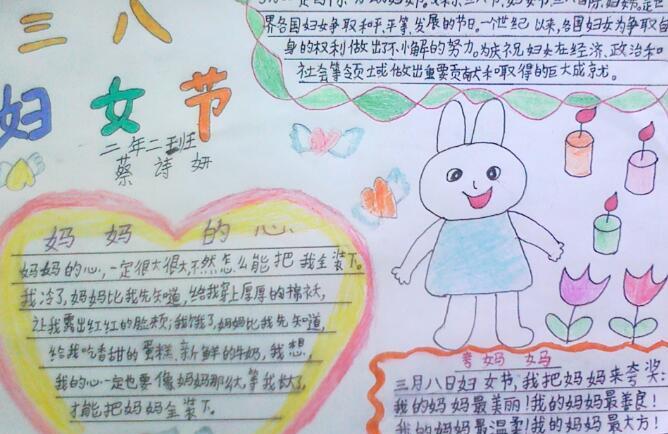 三八
妇女节
二年二班
蔡诗妍
界各国妇女争取和平、平等、发展的节日。一个世纪以来,各国妇女为争取自
身的权利做出了不懈的努力。为庆祝妇女在经济、政治和
社会等领域做出重要贡献和取得的巨大成就。
妈妈的心
妈妈的心,一定很大很大,不然怎么能把我全装下。
我冷了,妈妈比我先知道,给我穿上厚厚的棉袄,
让我露出红红的脸颊;我饿了,妈妈比我先知道,
给我吃香甜的蛋糕、新鲜的牛奶,我想,
我的心一定也要像妈妈那么大,等我长大了,
才能把妈妈全装下。
夸妈妈
三月八日妇女节,我把妈妈来夸奖:
我的妈妈最美丽!我的妈妈最善良!
我的妈妈最温柔!我的妈妈最大方!